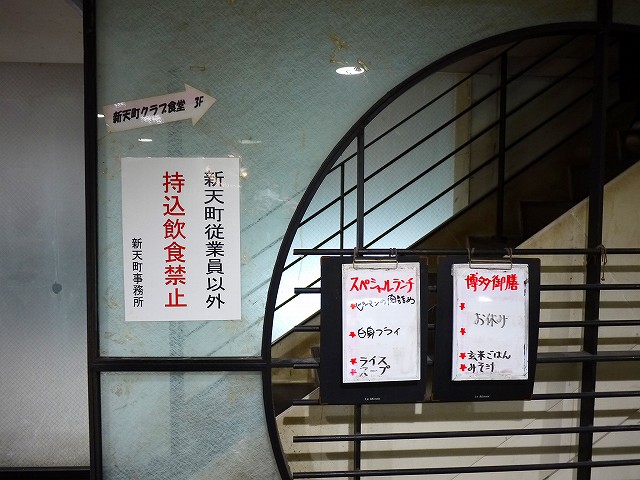 新天町クラブ食堂 3F
新天町従業員以外
持込飲食禁止
新天町事務所
スペシャルランチ
ピーマンの肉詰め
白身フライ
ライス
スープ
博多御膳
お休み
玄米ごはん
みそ汁